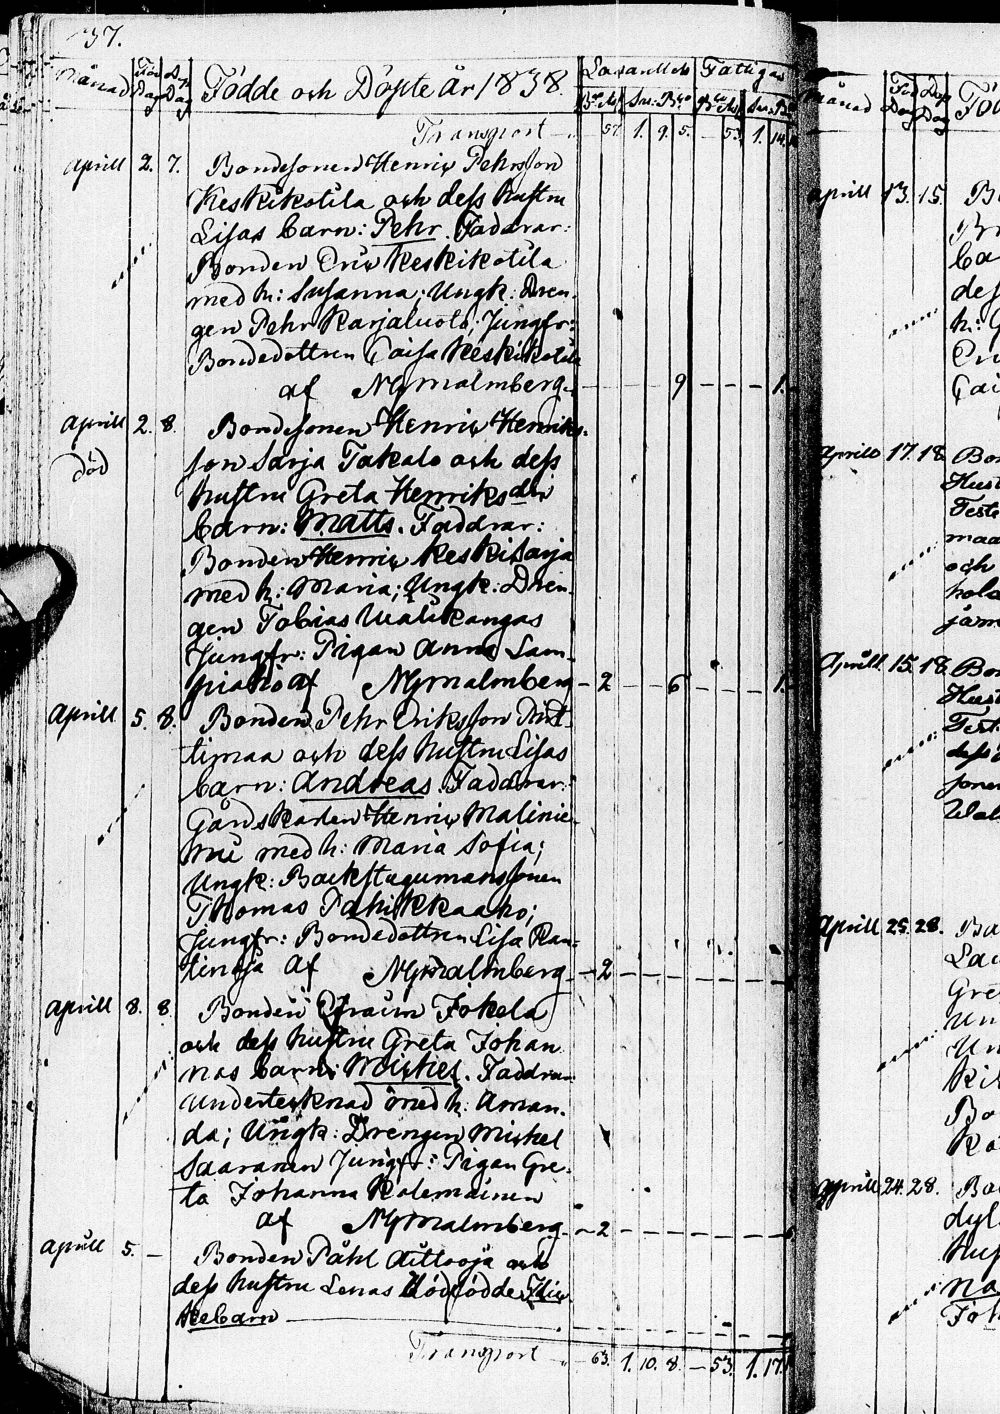 37.
Månad Född Dag Döp Dag Födde och Döpte År 1838. Lasarettet Fattigas
Bco Rdr Sr: Rbl Bco Rdr Sr: Rbl
Transport 57. 1. 9. 5. 53. 1. 14.
Aprill 2. 7. Bondesonen Henric Pehrsson
Keskikotila och dess hustru
Lisas barn: Pehr. Faddrar:
Bonden Eric Keskikotila
med h: Susanna; Ungk: Dren-
gen Pehr Karjaluoto; Jungfr:
Bondedottren Caisa Keskikotila
af N Gmalmberg 9 1.
Aprill 2. 8. Bondesonen Henric Henriks-
död son Sarja Takalo och dess
hustru Greta Henriksdr
barn: Matts. Faddrar:
Bonden Henric Keskisarja
med h: Maria; Ungk: Dren-
gen Tobias Walikangas
Jungfr: Pigan Anna Lam-
piaho af N Gmalmberg 2 6 1.
Aprill 5. 8. Bonden Pehr Eriksson Ant-
timaa och dess hustru Lisas
barn: Andreas. Faddrar:
Gårdskarlen Henric Malinie-
mi med h: Maria Sofia;
Ungk: Backstugumanssonen
Thomas Pahikkaaho;
Jungfr: Bondedottren Lisa Ran-
tinoja af N Gmalmberg 2
Aprill 8. 8. Bonden Efraim Jokela
och dess hustru Greta Johan
nas barn: Mickel. Faddrar
undertecknad med h: Aman-
da; Ungk: Drengen Mickel
Saaranen Jungfr: Pigan Gre-
ta Johanna Kolemainen
af N Gmalmberg 2
Aprill 5. Bonden Påhl Aittooja och
dess hustru Lenas dödfödde Flic-
kebarn
Transport 63. 1. 10. 8. 53. 1. 17.
Månad Född Dag Döp Dag
Aprill 13. 15.
Aprill 17. 18.
Hust
Aprill 15. 18.
Hust
Aprill 25. 28.
Gre
Aprill 24. 28.